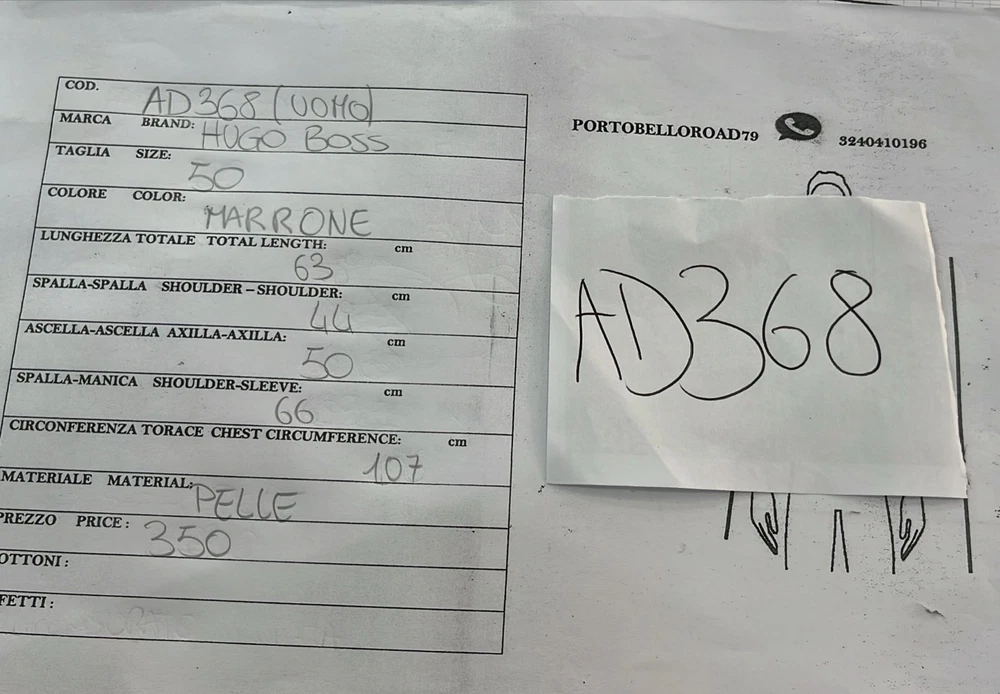 COD.
AD368 (UOMO)
MARCA BRAND:
HUGO BOSS
TAGLIA SIZE:
50
COLORE COLOR:
MARRONE
LUNGHEZZA TOTALE TOTAL LENGTH: cm
63
SPALLA-SPALLA SHOULDER–SHOULDER: cm
44
ASCELLA-ASCELLA AXILLA-AXILLA: cm
50
SPALLA-MANICA SHOULDER-SLEEVE: cm
66
CIRCONFERENZA TORACE CHEST CIRCUMFERENCE: cm
107
MATERIALE MATERIAL:
PELLE
PREZZO PRICE:
350
OTTONI:
FETTI:
PORTOBELLOROAD79 3240410196
AD368